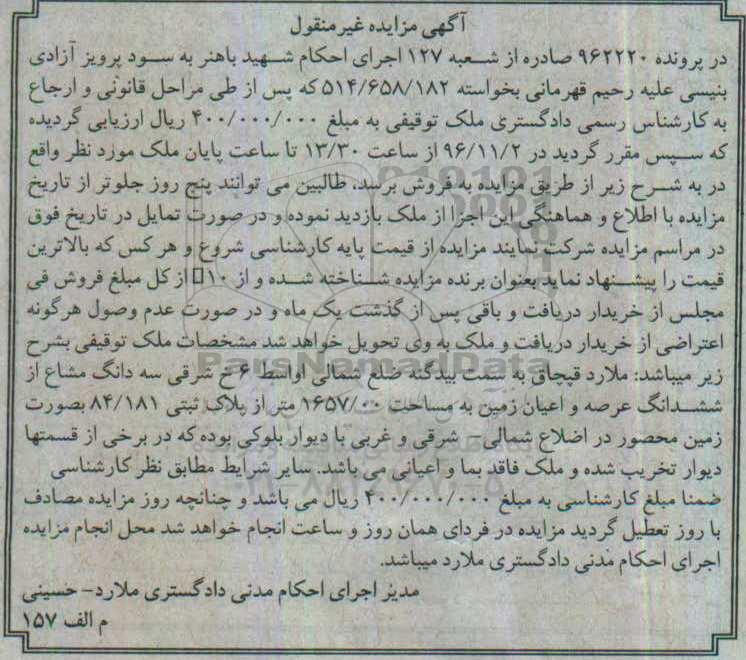 آگهی مزایده غیرمنقول
در پرونده ۹۶۲۲۲۰ صادره از شعبه ۱۲۷ اجرای احکام شهید باهنر به سود پرویز آزادی
بنیسی علیه رحیم قهرمانی بخواسته ۵۱۴/۶۵۸/۱۸۲ که پس از طی مراحل قانونی و ارجاع
به کارشناس رسمی دادگستری ملک توقیفی به مبلغ ۴۰۰/۰۰۰/۰۰۰ ریال ارزیابی گردیده
که سپس مقرر گردید در ۹۶/۱۱/۲ از ساعت ۱۳/۳۰ تا ساعت پایان ملک مورد نظر واقع
در به شرح زیر از طریق مزایده به فروش برسد. طالبین می توانند پنج روز جلوتر از تاریخ
مزایده با اطلاع و هماهنگی این اجرا از ملک بازدید نموده و در صورت تمایل در تاریخ فوق
در مراسم مزایده شرکت نمایند مزایده از قیمت پایه کارشناسی شروع و هر کس که بالاترین
قیمت را پیشنهاد نماید بعنوان برنده مزایده شناخته شده و از ۱۰ از کل مبلغ فروش فی
مجلس از خریدار دریافت و باقی پس از گذشت یک ماه و در صورت عدم وصول هرگونه
اعتراضی از خریدار دریافت و ملک به وی تحویل خواهد شد مشخصات ملک توقیفی بشرح
زیر میباشد: ملارد قپچاق به سمت بیدگنه ضلع شمالی اواسط ۶ خ شرقی سه دانگ مشاع از
ششدانگ عرصه و اعیان زمین به مساحت ۱۶۵۷/۰۰ متر از پلاک ثبتی ۸۴/۱۸۱ بصورت
زمین محصور در اضلاع شمالی- شرقی و غربی با دیوار بلوکی بوده که در برخی از قسمتها
دیوار تخریب شده و ملک فاقد بما و اعیانی می باشد. سایر شرایط مطابق نظر کارشناسی
ضمنا مبلغ کارشناسی به مبلغ ۴۰۰/۰۰۰/۰۰۰ ریال می باشد و چنانچه روز مزایده مصادف
با روز تعطیل گردید مزایده در فردای همان روز و ساعت انجام خواهد شد محل انجام مزایده
اجرای احکام مدنی دادگستری ملارد میباشد.
مدیر اجرای احکام مدنی دادگستری ملارد- حسینی
م الف ۱۵۷
ParsNamadData